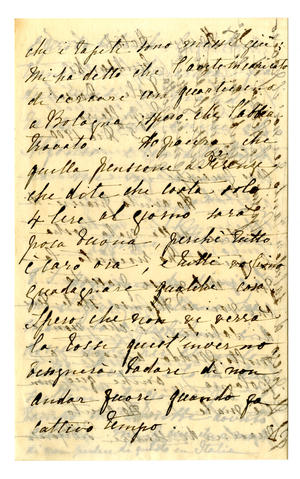 che i tapeti sono messi giù.
Mi ha detto che l'avete incaricato
di cercare un quartierino
a Bologna, spero che l'abbia
trovato. che
quella pensione a Firenze
che dite che costa solo
4 lire al giorno sarà
poca buona, perchè tutto
è caro ora, e tutti vogliono
guadagnare qualche cosa
Spero che non vi verrà
la tosse quest'inverno
bisognerà badare di non
andar fuori quando fa
cattivo tempo.
in Italia